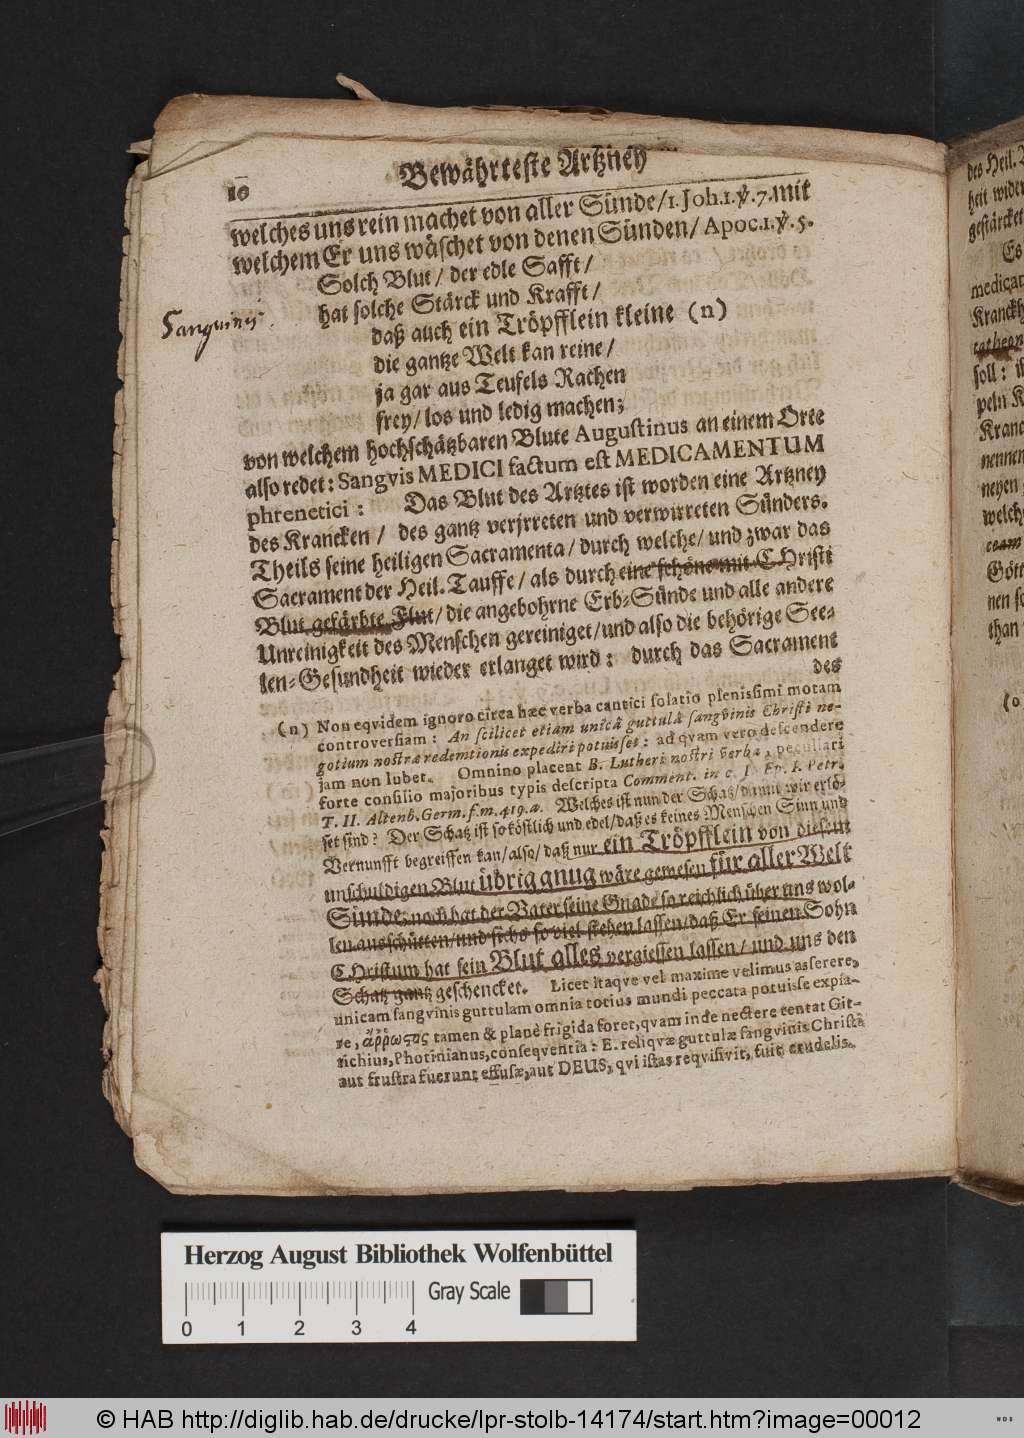 10
Bewährteste Artzney
welches uns rein machet von aller Sünde/1. Joh.1.℣.7.mit
welchem Er uns wäschet von denen Sünden/ Apoc.1.℣.5.
Solch Blut/ der edle Safft/
hat solche Stärck und Krafft/
Sanguinis.
daß auch ein Tröpfflein kleine (n)
die gantze Welt kan reine/
ja gar aus Teufels Rachen
frey/ los und ledig machen;
von welchem hochschätzbaren Blute Augustinus an einem Orte
also redet: Sangvis MEDICI factum est MEDICAMENTUM
phrenetici: Das Blut des Artztes ist worden eine Artzney
des Krancken / des gantz verjrreten und verwirreten Sünders.
Theils seine heiligen Sacramenta/ durch welche/ und zwar das
Sacrament der Heil. Tauffe/ als durch eine schöne mit CHristi
Blut gefärbte Flut/ die angebohrne Erb-Sünde und alle andere
Unreinigkeit des Menschen gereiniget/und also die behörige See-
len-Gesundheit wieder erlanget wird: durch das Sacrament
des
(n) Non eqvidem ignoro circa hæc verba cantici solatio plenissimi motam
controversiam: An scilicet etiam unicâ guttulâ sangvinis Christi ne-
gotium nostræ redemtionis expediri potuisset: ad qvam vero descendere
jam non lubet. Omnino placent B. Lutheri nostri verba, peculiari
forte consilio majoribus typis descripta Comment. in c. I. Ep. I. Petr.
T. II. Altenb. Germ. f. m. 419. a. Welches ist nun der Schatz/ damit wir erlö-
set sind? Der Schatz ist so köstlich und edel/ daß es keines Menschen Sinn und
Vernunfft begreiffen kan/also/ daß nur ein Tröpfflein von diesem
unschuldigen Blut übrig gnug wäre gewesen für aller Welt
Sünde: noch hat der Vater seine Gnade so reichlich über uns wol-
len ausschütten/und sichs so viel stehen lassen/daß Er seinen Sohn
CHristum hat sein Blut alles vergiessen lassen/ und uns den
Schatz gantz geschencket. Licet itaqve vel maxime velimus asserere,
unicam sangvinis guttulam omnia totius mundi peccata potuisse expia-
re, ἄῤῥωςος tamen & planè frigida foret, qvam inde nectere tentat Git-
tichius, Photinianus, conseqventia: E. reliqvæ guttulæ sangvinis Christi
aut frustra fuerunt effusæ, aut DEUS, qvi istas reqvisivit, fuit crudelis.
des Heil.
heit wider
gestärcket
Es
medicam
Kranckh
soll: i
peln K
Kranck
nennen
neyen
welche
Gött
nen so
than
(o
Herzog August Bibliothek Wolfenbüttel
Gray Scale
0 1 2 3 4
© HAB http://diglib.hab.de/drucke/lpr-stolb-14174/start.htm?image=00012